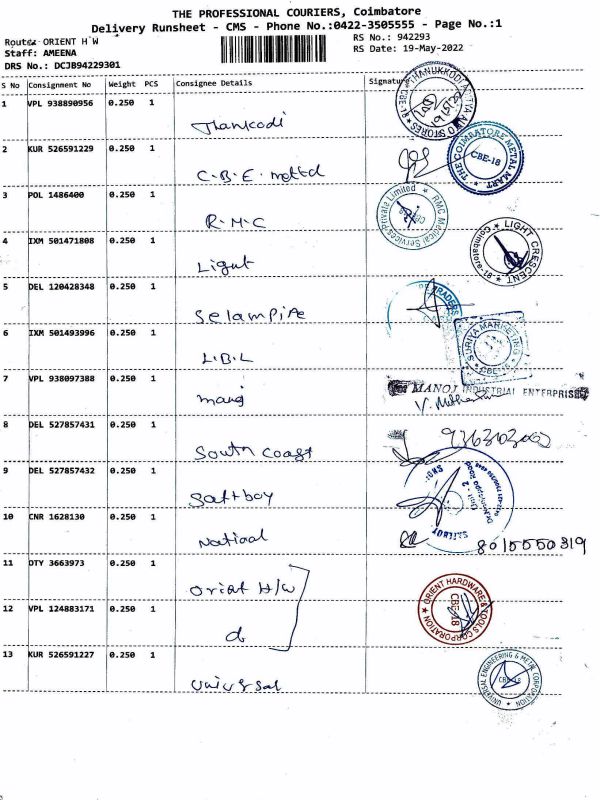 THE PROFESSIONAL COURIERS, Coimbatore
Delivery Runsheet - CMS - Phone No.:0422-3505555 - Page No.:1
Route: ORIENT H W
RS No.: 942293
Staff: AMEENA
RS Date: 19-May-2022
DRS No.: DCJB94229301
S No Consignment No Weight PCS Consignee Details Signature
1 VPL 938890956 0.250 1
Thankodi
2 KUR 526591229 0.250 1
THE COIMBATORE METAL MART
CBE-18
C.B.E. mettd
3 POL 1486400 0.250 1
RMC Medical Services Private Limited
R.M.C
4 IXM 501471808 0.250 1
LIGHT CRESCENT
Coimbatore-18
Light
5 DEL 120428348 0.250 1
TRADERS
Selampire
6 IXM 501493996 0.250 1
SURIYA MARKETING
CBE-18
L.B.L
7 VPL 938097388 0.250 1
MANOJ INDUSTRIAL ENTERPRISES
manoj
8 DEL 527857431 0.250 1
South coast
9 DEL 527857432 0.250 1
Unit - 2
SAILBOY
Sailboy
10 CNR 1628130 0.250 1
National
8015550319
11 OTY 3663973 0.250 1
Orient H/W
12 VPL 124883171 0.250 1
ORIENT HARDWARE & TOOLS CORPORATION
CBE-18
d
13 KUR 526591227 0.250 1
UNIVERSAL ENGINEERING & METAL CORPORATION
CBE-18
Universal